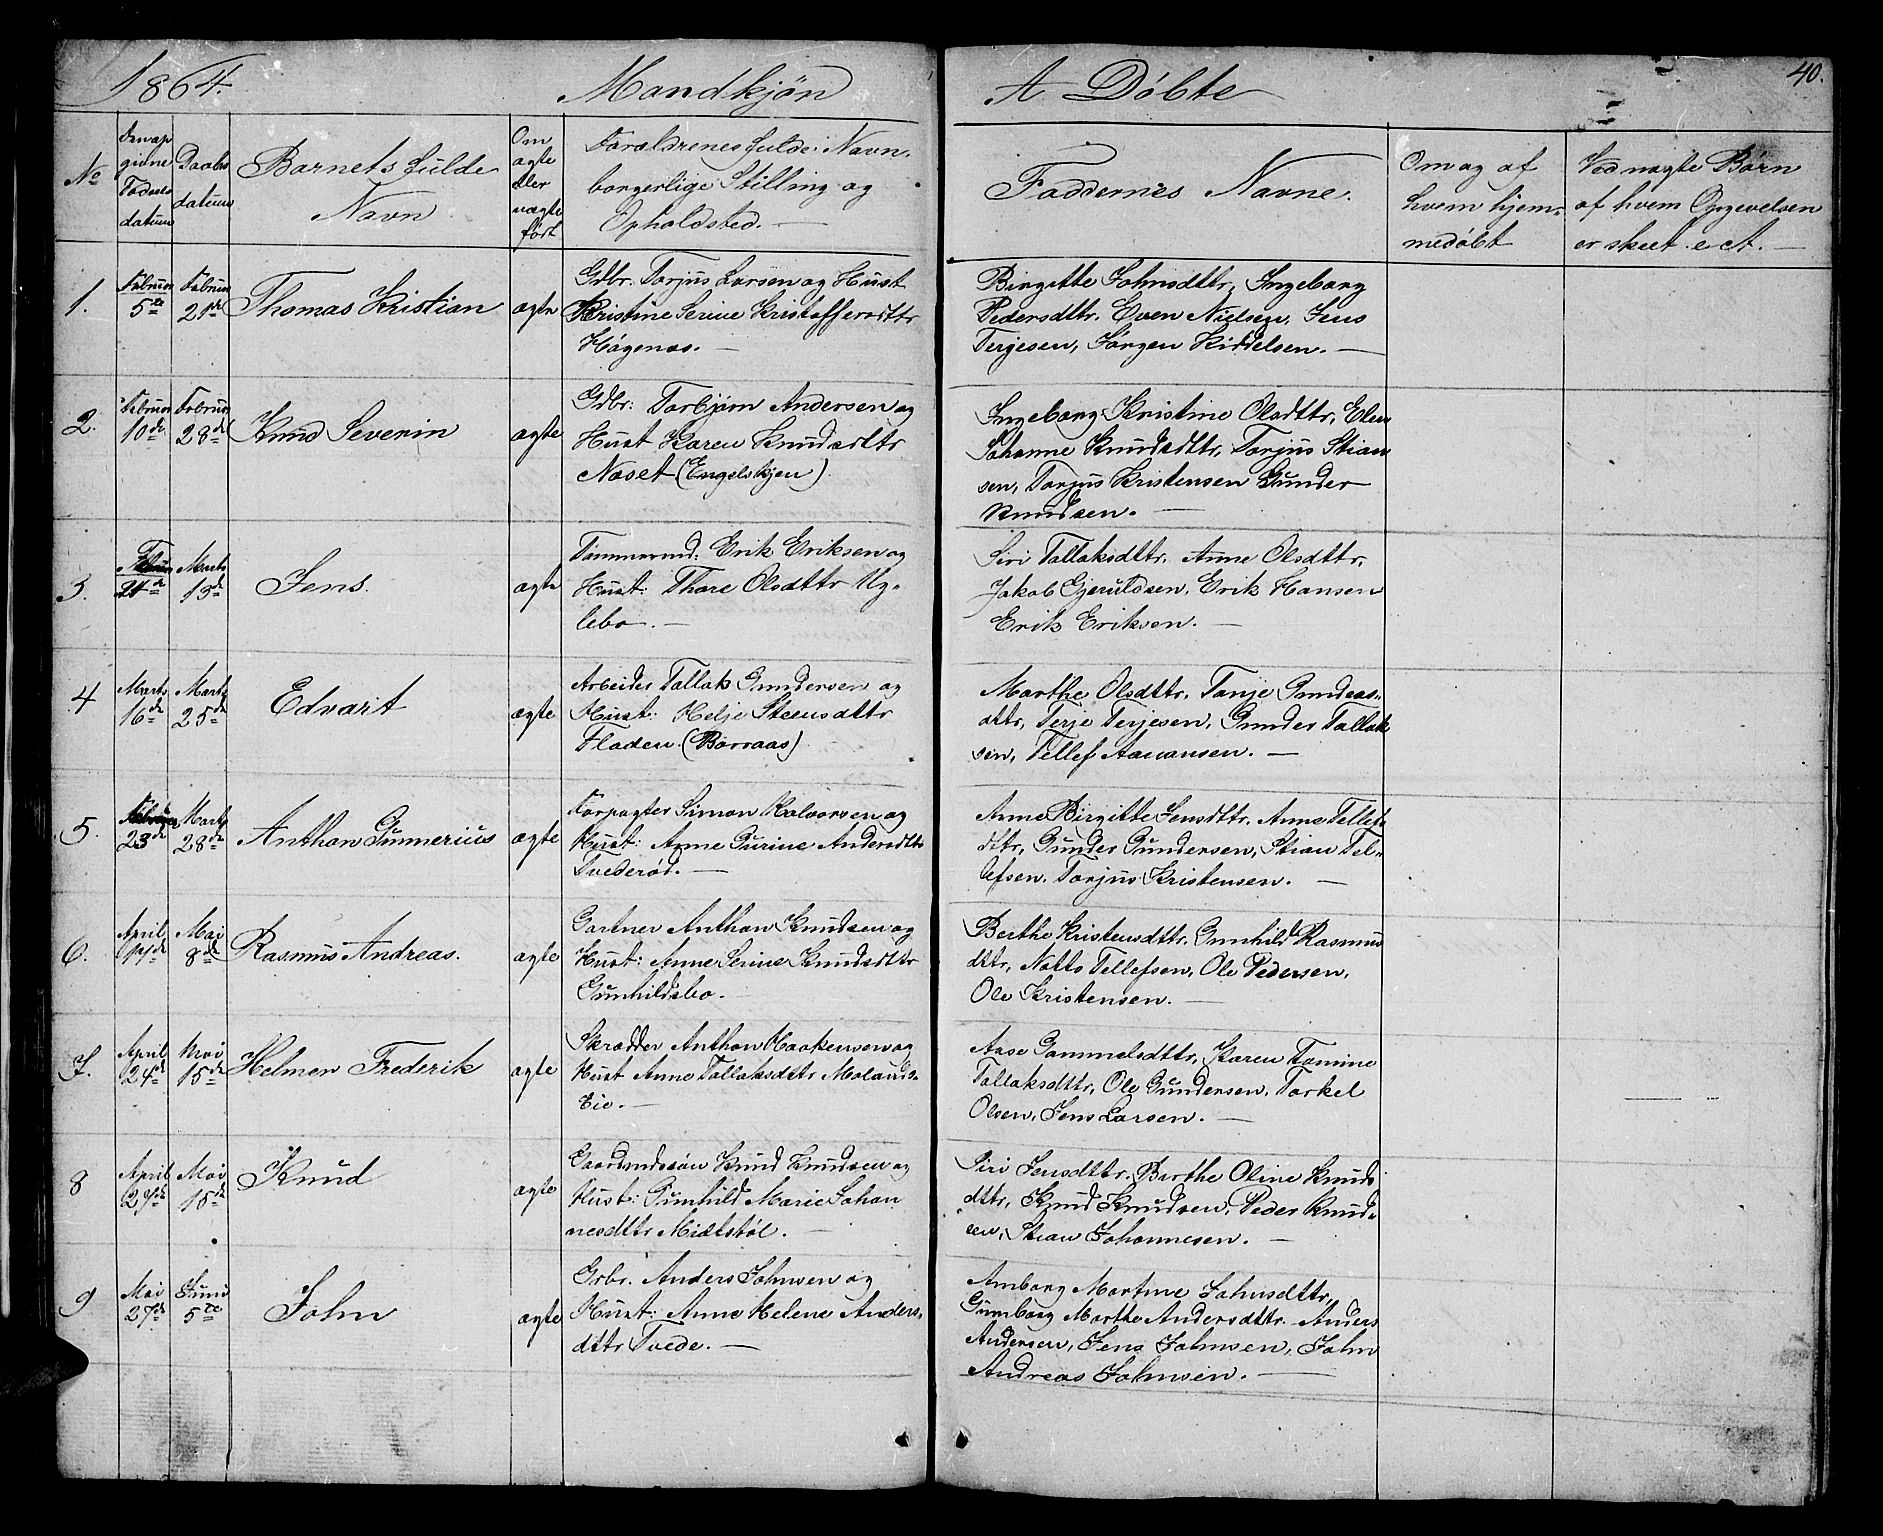 1864.
Mandkjøn
A. Døbte
40.
No
Omop
givne
Fødsels
datum
Daabs
datum
Barnets fulde
Navn
Om
ægte
eller
uægte
født
Forældrenes fulde Navn,
borgerlige Stilling og
Opholdsted. —
Faddernes Navne.
Om og af
hvem hjem-
medøbt
Ved uægte Børn
af hvem Opgevelsen
er skeet e.c.t. —
1.
Februar
5te
Februar
21de
Thomas Kristian
ægte
Gdbr. Torjus Larsen og Hust
Kristine Serine Kristoffersdttr
Høgenæs. —
Birgitte Johnsdttr, Ingeborg
Pedersdttr. Even Nielsen, Jens
Terjesen, Jørgen Kiddelsen. —
2.
Februar
10de
Februar
28de
Knud Severin
ægte
Gdbr: Torbjørn Andersen og
Hust Karen Knudsdttr
Næset (Engelskjen)
Ingeborg Kristine Olsdttr, Elen
Johanne Knudsdttr, Torjus Stian
sen, Torjus Kristensen Gunder
Knudsen. —
3.
Februar
21de
Marts
13de
Jens.
ægte
Tømmermd: Erik Eriksen og
Hust: Thore Olsdttr Ug-
lebo. —
Siri Tallaksdttr. Anne Olsdttr.
Jakob Gjeruldsen, Erik Hansen
Erik Eriksen. —
4
Marts
16de
Marts
25de
Edvart
ægte
Arbeider Tallak Gundersen og
Hust: Helje Steensdttr
Fladen (Børraas)
Marthe Olsdttr, Tanje Gundeas-
dttr, Terje Terjesen, Gunder Tallak
sen, Tellef Aanansen. —
5.
23de
Marts
28de
Anthon Gunnerius
ægte
Forpagter Simon Halvorsen og
Hust: Anne Gurine Andersdttr
Tvederød. —
Anne Birgitte Jensdttr, Anne Tellefs
dttr, Gunder Gundersen, Stian Tel-
lefsen. Torjus Kristensen. —
6.
April
14de
Mai
8de
Rasmus Andreas.
ægte
Gartner Anthon Knudsen og
Hust: Anne Serine Knudsdttr
Gunhildsbo. —
Berthe Kristensdttr. Gunhild Rasmus
dttr, Notto Tellefsen, Ole Pedersen,
Ole Kristensen. —
7.
April
24de
Mai
15de
Helmen Frederik
ægte
Skrædder Anthon Haakensen og
Hust Anne Tallaksdttr Molands-
Eie. —
Aase Gammelsdttr, Karen Tomine
Tallaksdttr, Ole Gundersen, Torkel
Olsen, Jens Larsen. —
8
April
27de
Mai
15de
Knud
ægte
Gaardmdssøn Knud Knudsen og
Hust: Gunhild Marie Johan
nesdttr Midtstøl. —
Siri Jensdttr. Berthe Oline Knuds
dttr, Knud Knudsen, Peder Knud-
sen, Stian Johannesen. —
9
Mai
27de
Juni
5te
John
ægte
Grbr. Anders Johnsen og
Hust: Anne Helene Anders-
dttr Tvede. —
Amborg Martine Johnsdttr,
Gumborg Marthe Andersdttr. Anders
Andersen, Jens Johnsen, John
Andreas Johnsen. —